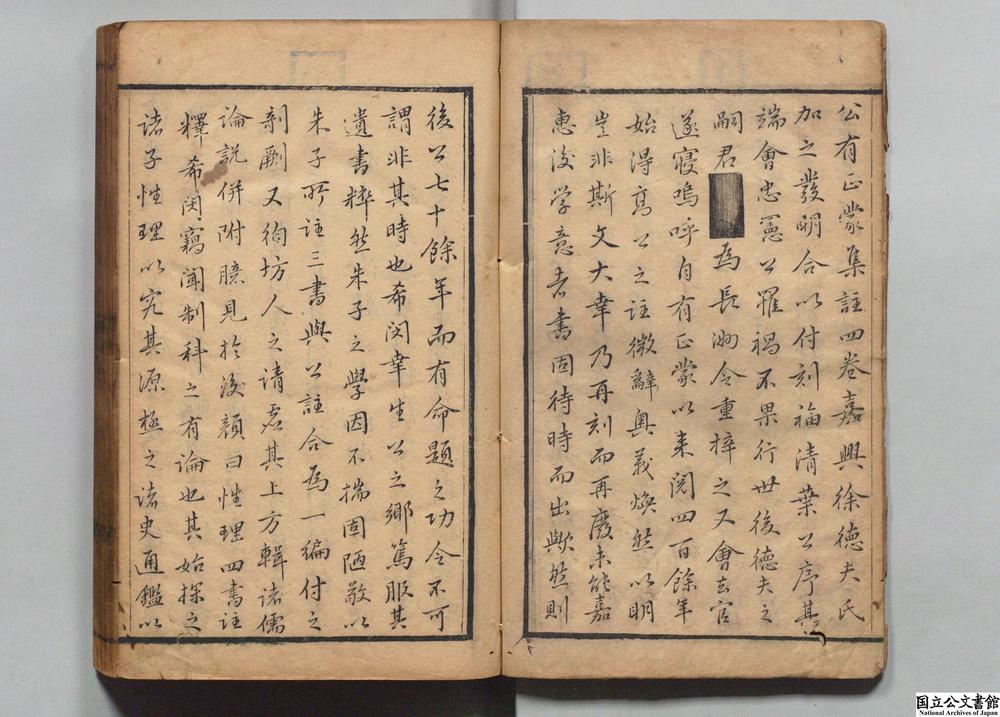 公有正蒙集註四卷嘉興徐德夫氏
加之發明合以付刻福清葉公序其
端會忠憲公罹禍不果行世後德夫之
嗣君為長洲令重梓之又會去官
遂寢嗚呼自有正蒙以来閱四百餘年
始得高公之註微辭奧義煥然以明
豈非斯文大幸乃再刻而再廢未能嘉
惠後学意者書固待時而出歟然則
後公七十餘年而有命題之功令不可
謂非其時也希閔幸生公之鄉篤服其
遺書粹然朱子之學因不揣固陋敬以
朱子所註三書與公註合為一編付之
剞劂又徇坊人之請於其上方輯諸儒
論説併附臆見於後顏曰性理四書註
釋希閔竊聞制科之有論也其始採之
諸子性理以究其源極之諸史通鑑以
国立公文書館
National Archives of Japan